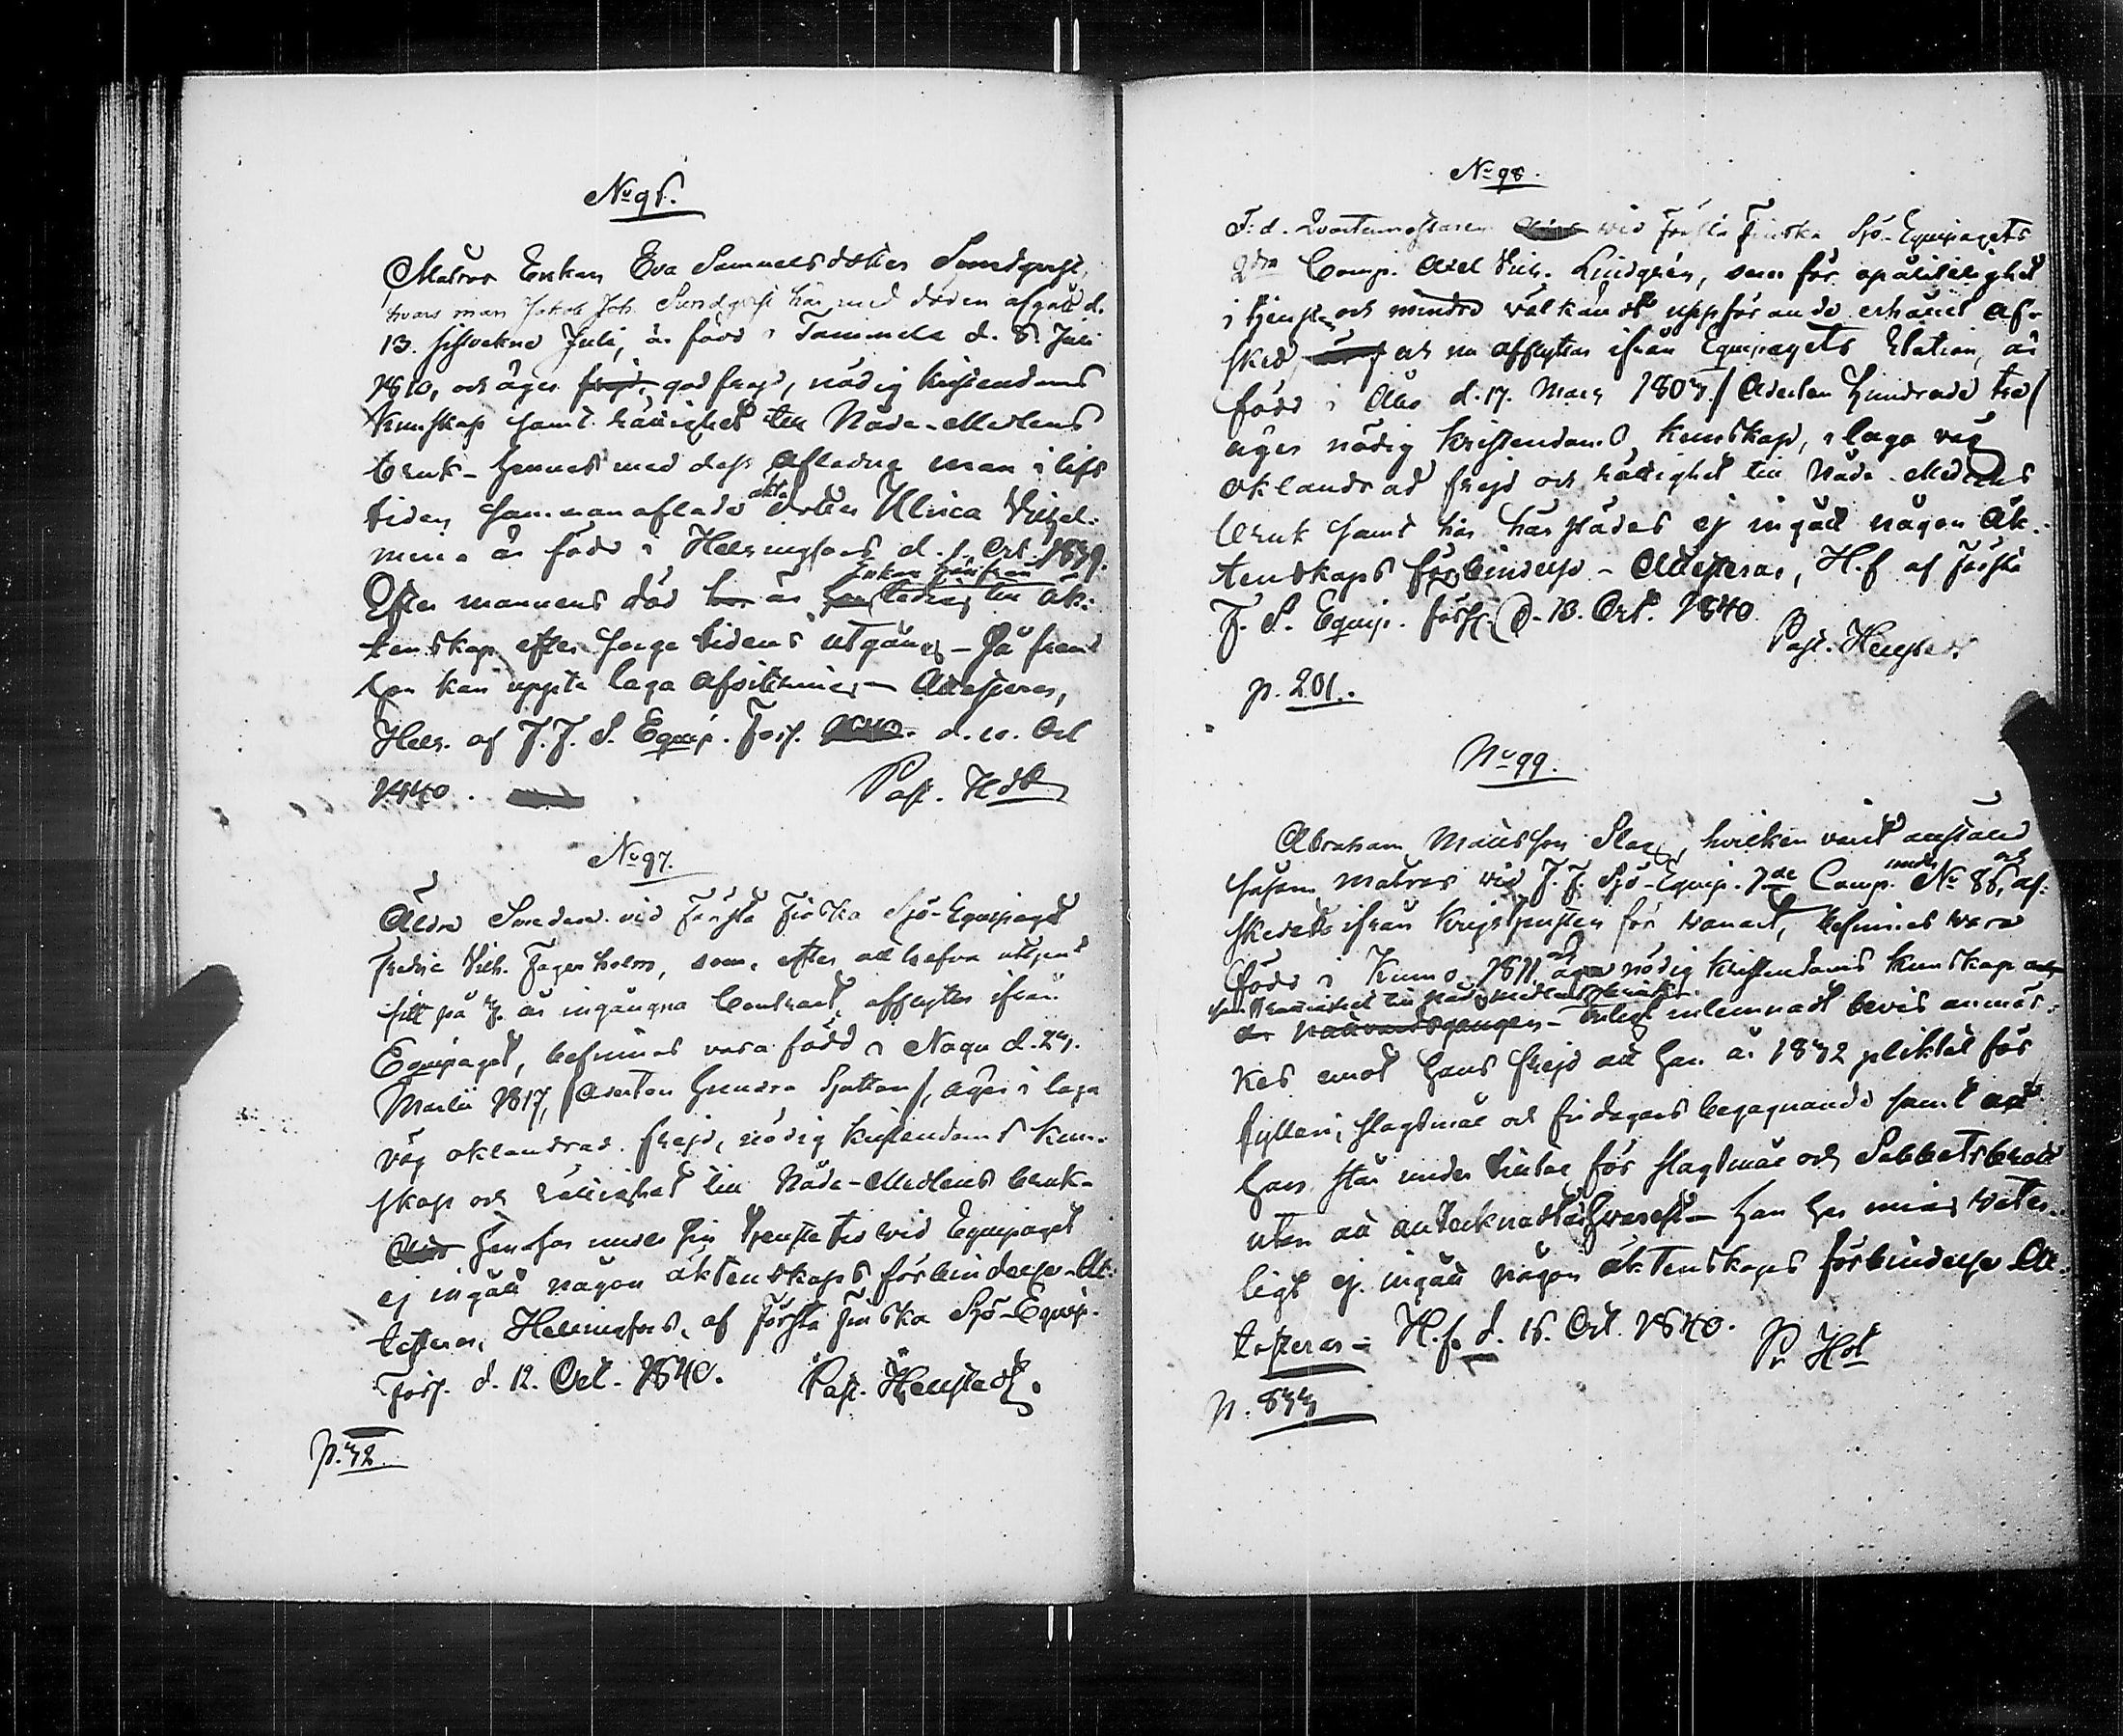 No 96.
Matros Enkan Eva Samuelsdotter Sundqvist,
hvars man Jakob Joh. Sundqvist har med döden afgått d.
13. sistvekne Juli, är född i Tammela d. 8 Juli
1810, och äger frejd, god frejd, nödig kristendoms
kunskap samt rättighet till Nåde-Medlens
bruk - hennes med dess afledne man i lifs
tiden sammanaflade äkta dotter Ulrica Vilhel-
mina är född i Helsingfors d. 1 Oct. 1839.
Efter mannens död är Enkan hinderfri ledig till äk-
tenskap efter sorgetidens utgång - så framt
hon kan uppte laga afvittring - Attesteras,
Hels. af F. F. S. Equip. Förs. d. 10. Oct
1840. Past. Hdt
No 97.
Äldre Smeden vid Första Finska Sjö-Equipaget
Fredric Vilh. Fagerholm, som, efter att hafva uttjent
sitt på år ingångna Contract, afflyttar ifrån
Equipaget, befinnes vara född i Nagu d. 23.
Martii 1817, /Aderton hundra Sjutton/, äger i laga
väg oklandrad frejd, nödig kristendoms kun-
skap och rättighet till Nåde-Medlens bruk.
han har under sin tjenstetid vid Equipaget
ej ingått någon äktenskaps förbindelse - At-
testeras, Helsingfors, af Första Finska Sjö-Equip.
Förs. d. 12. Oct. 1840. Past. Hengstedt.
p. 32.
No 98.
F.d. Qvartermästaren vid Första Finska Sjö-Equipagets
2dra Comp. Axel Vilh. Lindgrén, som för opålitlighet
i tjensten och mindre välkändt uppförande erhållit Af-
sked, och nu afflyttar ifrån Equipagets Station, är
född i Åbo d. 17. Mars 1803. /Aderton Hundrade tre/
äger nödig Kristendoms kunskap, i laga väg
oklandrad frejd och rättighet till Nåde-Medlens
bruk samt har härstädes ej ingått någon Äk-
tenskaps förbindelse - Attesteras, H.f af Första
F. S. Equip. förs. d. 13. Oct. 1840.
Past. Hengstedt
p. 201.
No 99.
Abraham Mattsson Slag, hvilken varit anställd
såsom Matros vid F. F. Sjö-Equip. 1de Comp. under No 86, och af-
skedats ifrån Krigstjensten för vanart, befinnes vara
född i Kumo 1811, och äger nödig kristendoms kunskap
samt rättighet till Nådemedlens bruk.
nattvardsgången - Enligt inlemnadt bevis anmär-
kes emot hans frejd att han år 1832 pliktat för
fylleri, slagsmål och fridagars begagnande samt att
han står under tilltal för slagsmål och Sabbatsbrott
utan att antecknadt är hvarest - han har mig veter-
ligt ej ingått någon äktenskaps förbindelse At-
testeras - H.f. d. 16. Oct. 1840. Pr Hdt
p. 833